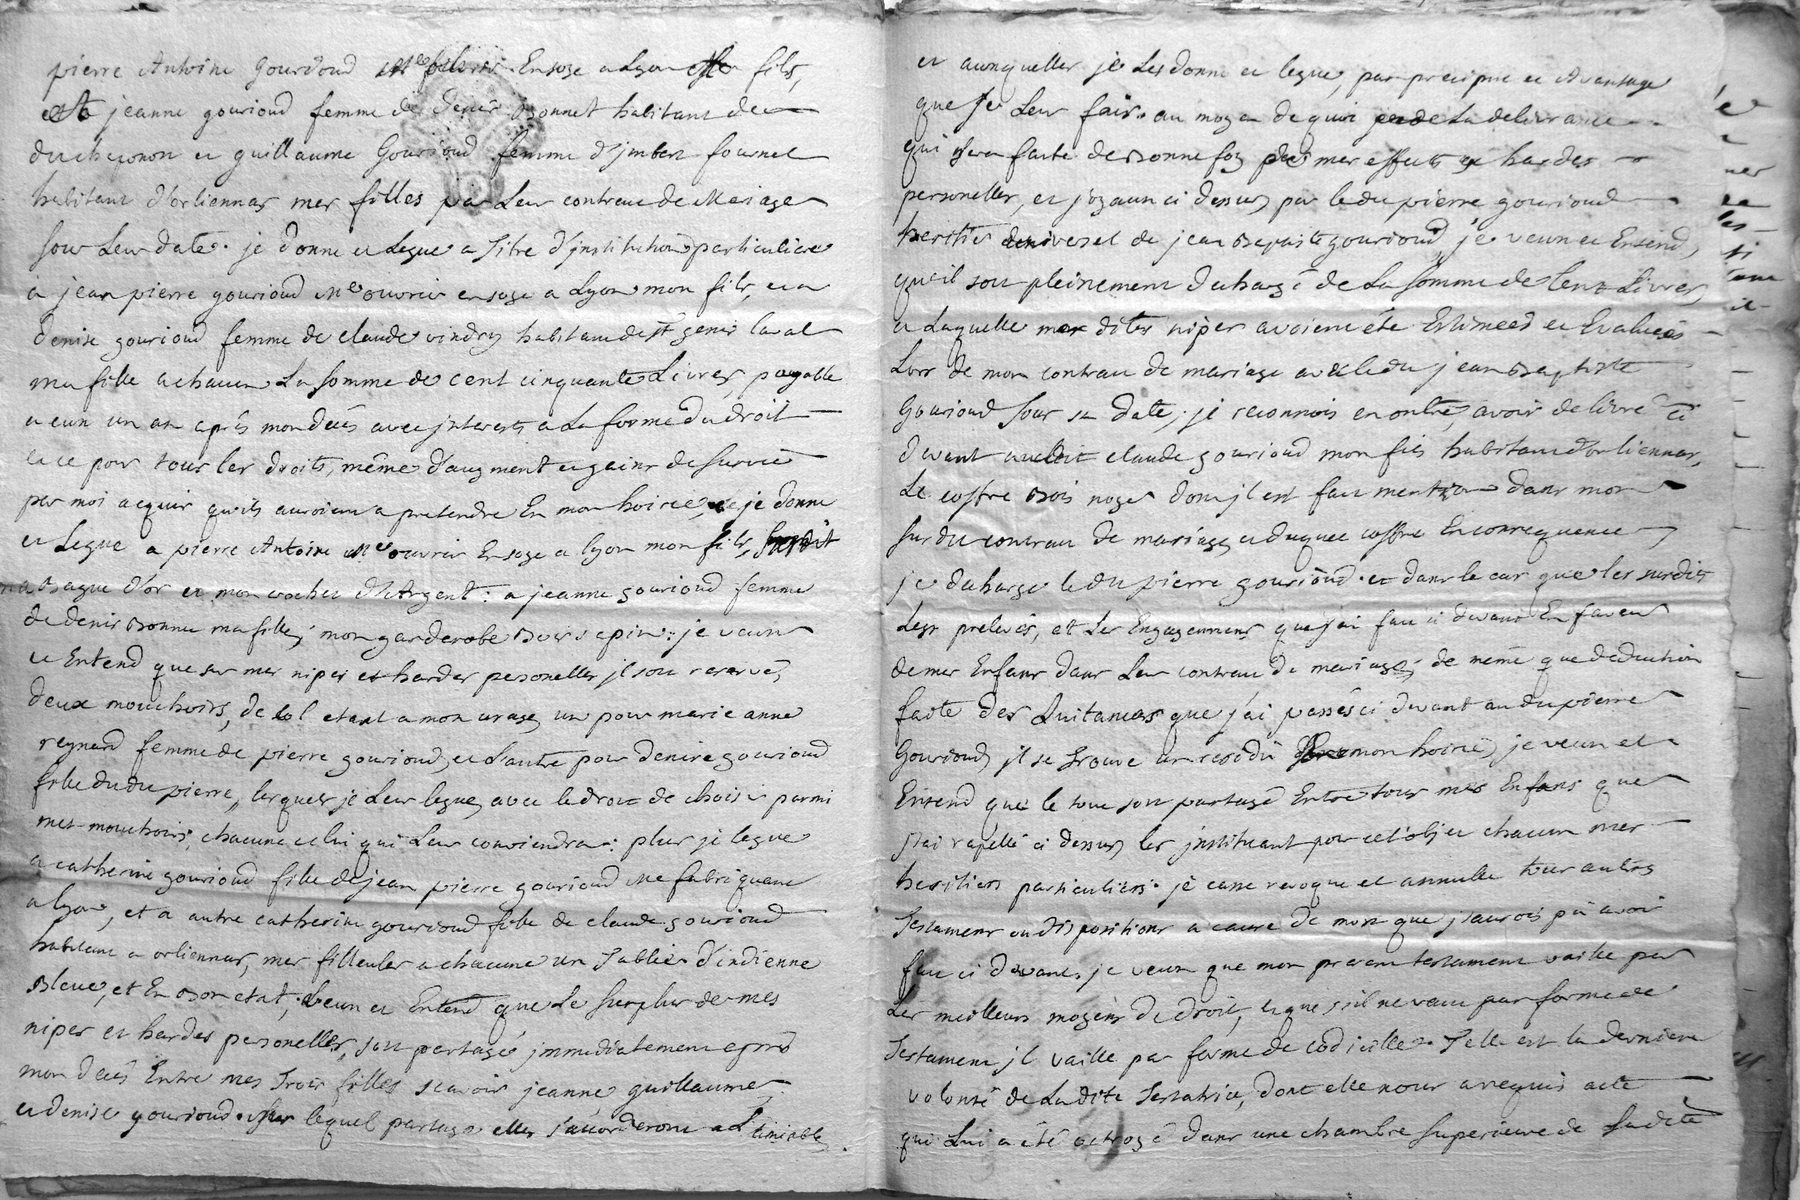 pierre Antoine gourioud Me ouvrier En soye a Lyon mon fils,
et a jeanne gourioud femme de Denis Bonnet habitant de
et guillaume Gourioud femme d'jmbert fournel
habitant d'orliennas mes filles par Leur contract de Mariage
sous Leur date. je donne et Legue a titre d'jnstitution particuliere
a jean pierre gourioud Me ouvrier en soye a Lyon mon fils, et a
denise gourioud femme de claude vindry habitant de St genis laval
ma fille a chacun La somme de cent cinquante Livres, payable
a eux un an aprés mon décés avec jnterests a La forme du droit
et ce pour tous les droits, même d'augment et gains de survie
par moi acquis qu'ils auroient a pretendre En mon hoirie, et je donne
et Legue a pierre Antoine Me ouvrier En soye a lyon mon fils, susdit
ma Bague d'or et mon crochet d'Argent: a jeanne gourioud femme
de denis Bonnet ma fille, mon garderobe Bois sapin: je veux
et Entend que sur mes nipes et hardes personelles jl soit reservé,
deux mouchoirs, de col etant a mon usage, un pour marie anne
reynard femme de pierre gourioud, et l'autre pour denise gourioud
fille dudit pierre, lesquels je Leur legue, avec le droit de choisir parmi
mes mouchoirs, chacune celui qui Leur conviendra: plus je legue
a catherine gourioud fille de jean pierre gourioud Me fabriquant
a lyon, et a autre catherine gourioud fille de claude gourioud
habitant a orliennas, mes filleules a chacune un Tablier d'indienne
Bleue, et En Bon etat, veux et Entend que Le surplus de mes
nipes et hardes personelles, soit partagé jmmediatement aprés
mon décés Entre mes trois filles scavoir jeanne guillaume,
et denise gourioud. lequel partage elles s'accorderont a L'amiable,
et auxquelles je Les donne et legue, par precipu et Avantage
que je Leur fais. au moyen de quoi de La delivrance
qui sera faite de Bonne foy de mes effects et hardes
personelles, et joyaux ci dessus, par ledit pierre gourioud
heritier universel de jean Baptiste gourioud, je veux et Entend,
qu'il soit pleinement dechargé de La somme de Cent Livres,
a Laquelle mes dites nipes avoient été Estimées et Evaluées
Lors de mon contract de mariage avec ledit jean Baptiste
Gourioud sous sa date, je reconnois en outre, avoir delivré ci
devant audit claude gourioud mon fils habitant d'orliennas,
Le coffre Bois noyer dont jl est fait mention dans mon
susdit contract de mariage et duquel coffre En consequence,
je decharge ledit pierre gourioud. et dans le cas que les susdits
Legs prelevés, et Les Engagements que j'ai fait ci devant En faveur
de mes Enfans dans Leur contract de mariage, de même que deduction
faite des Quitances que j'ai passés ci devant audit pierre
Gourioud, jl se trouve un residû dans mon hoirie, je veux et
Entend que le tout soit partagé Entre tous mes Enfans que
j'ai rapellé ci dessus, les jnstituant pour cet objet chacun mes
heritiers particuliers. je casse revoque et annulle tous autres
Testament ou dispositions a cause de mort que j'aurois pû avoir
fait ci devant, je veux que mon present testament vaille par
Les meilleurs moyens de droit, et que s'il ne vaut par forme de
Testament jl vaille par forme de codicille. Telle est la derniere
volonté de Ladite Testatrice, dont elle nous a requis acte
qui Lui a été octroyé dans une chambre superieure de sadite